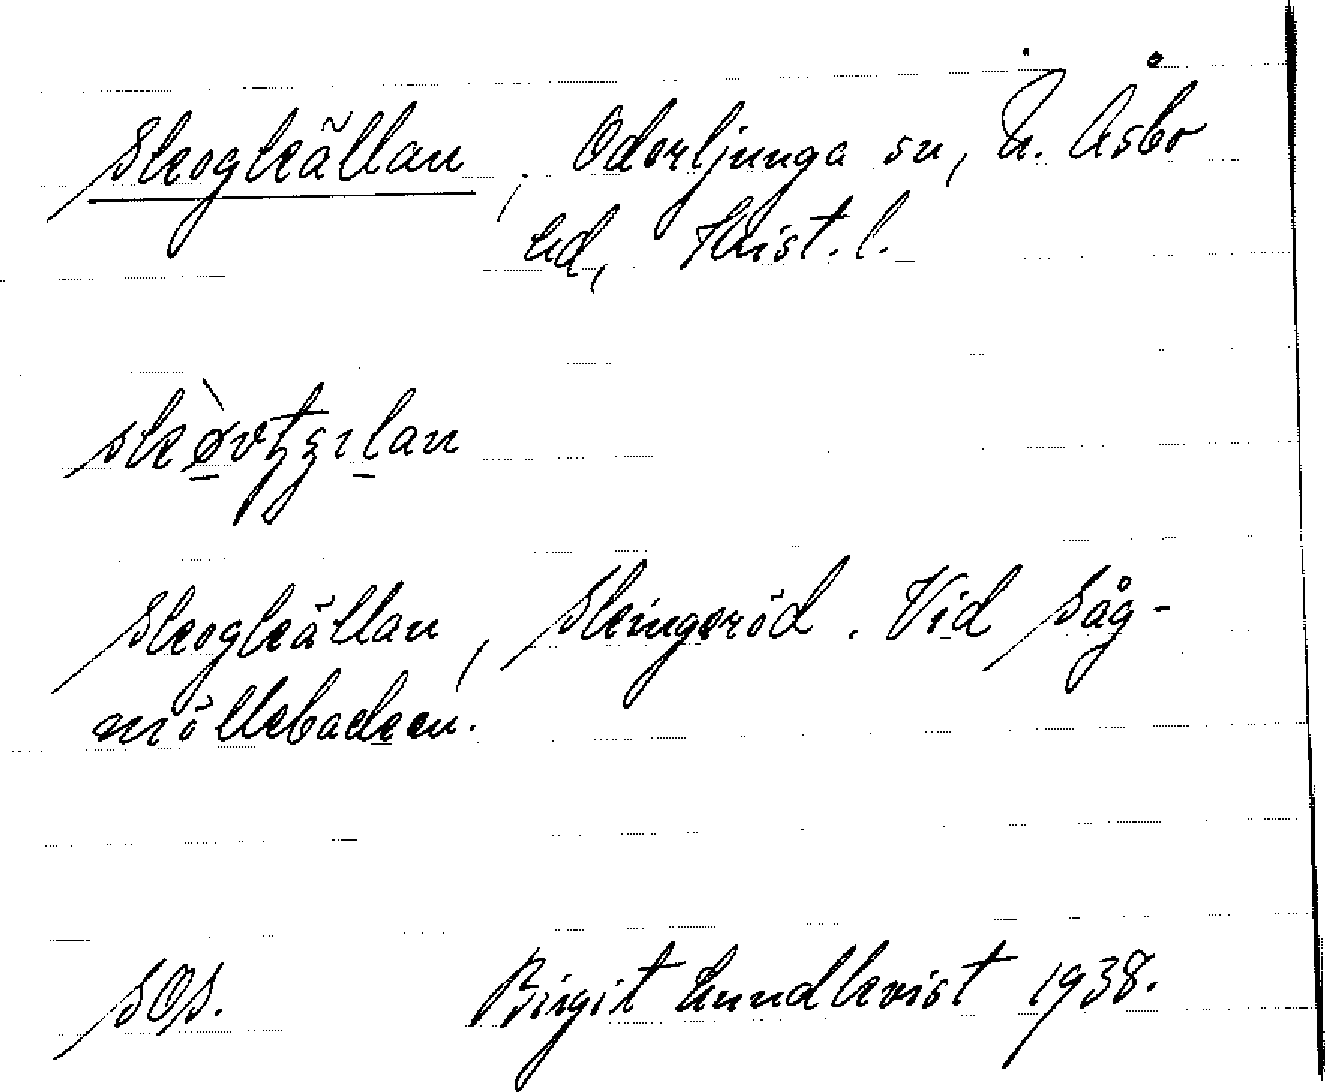 Skogkällan, Oderljunga sn, N. Åsbo
hd, Krist. l.
Skogkällan, Skingeröd. Vid Såg-
möllebacken.
SOS. Birgit Lundkvist 1938.